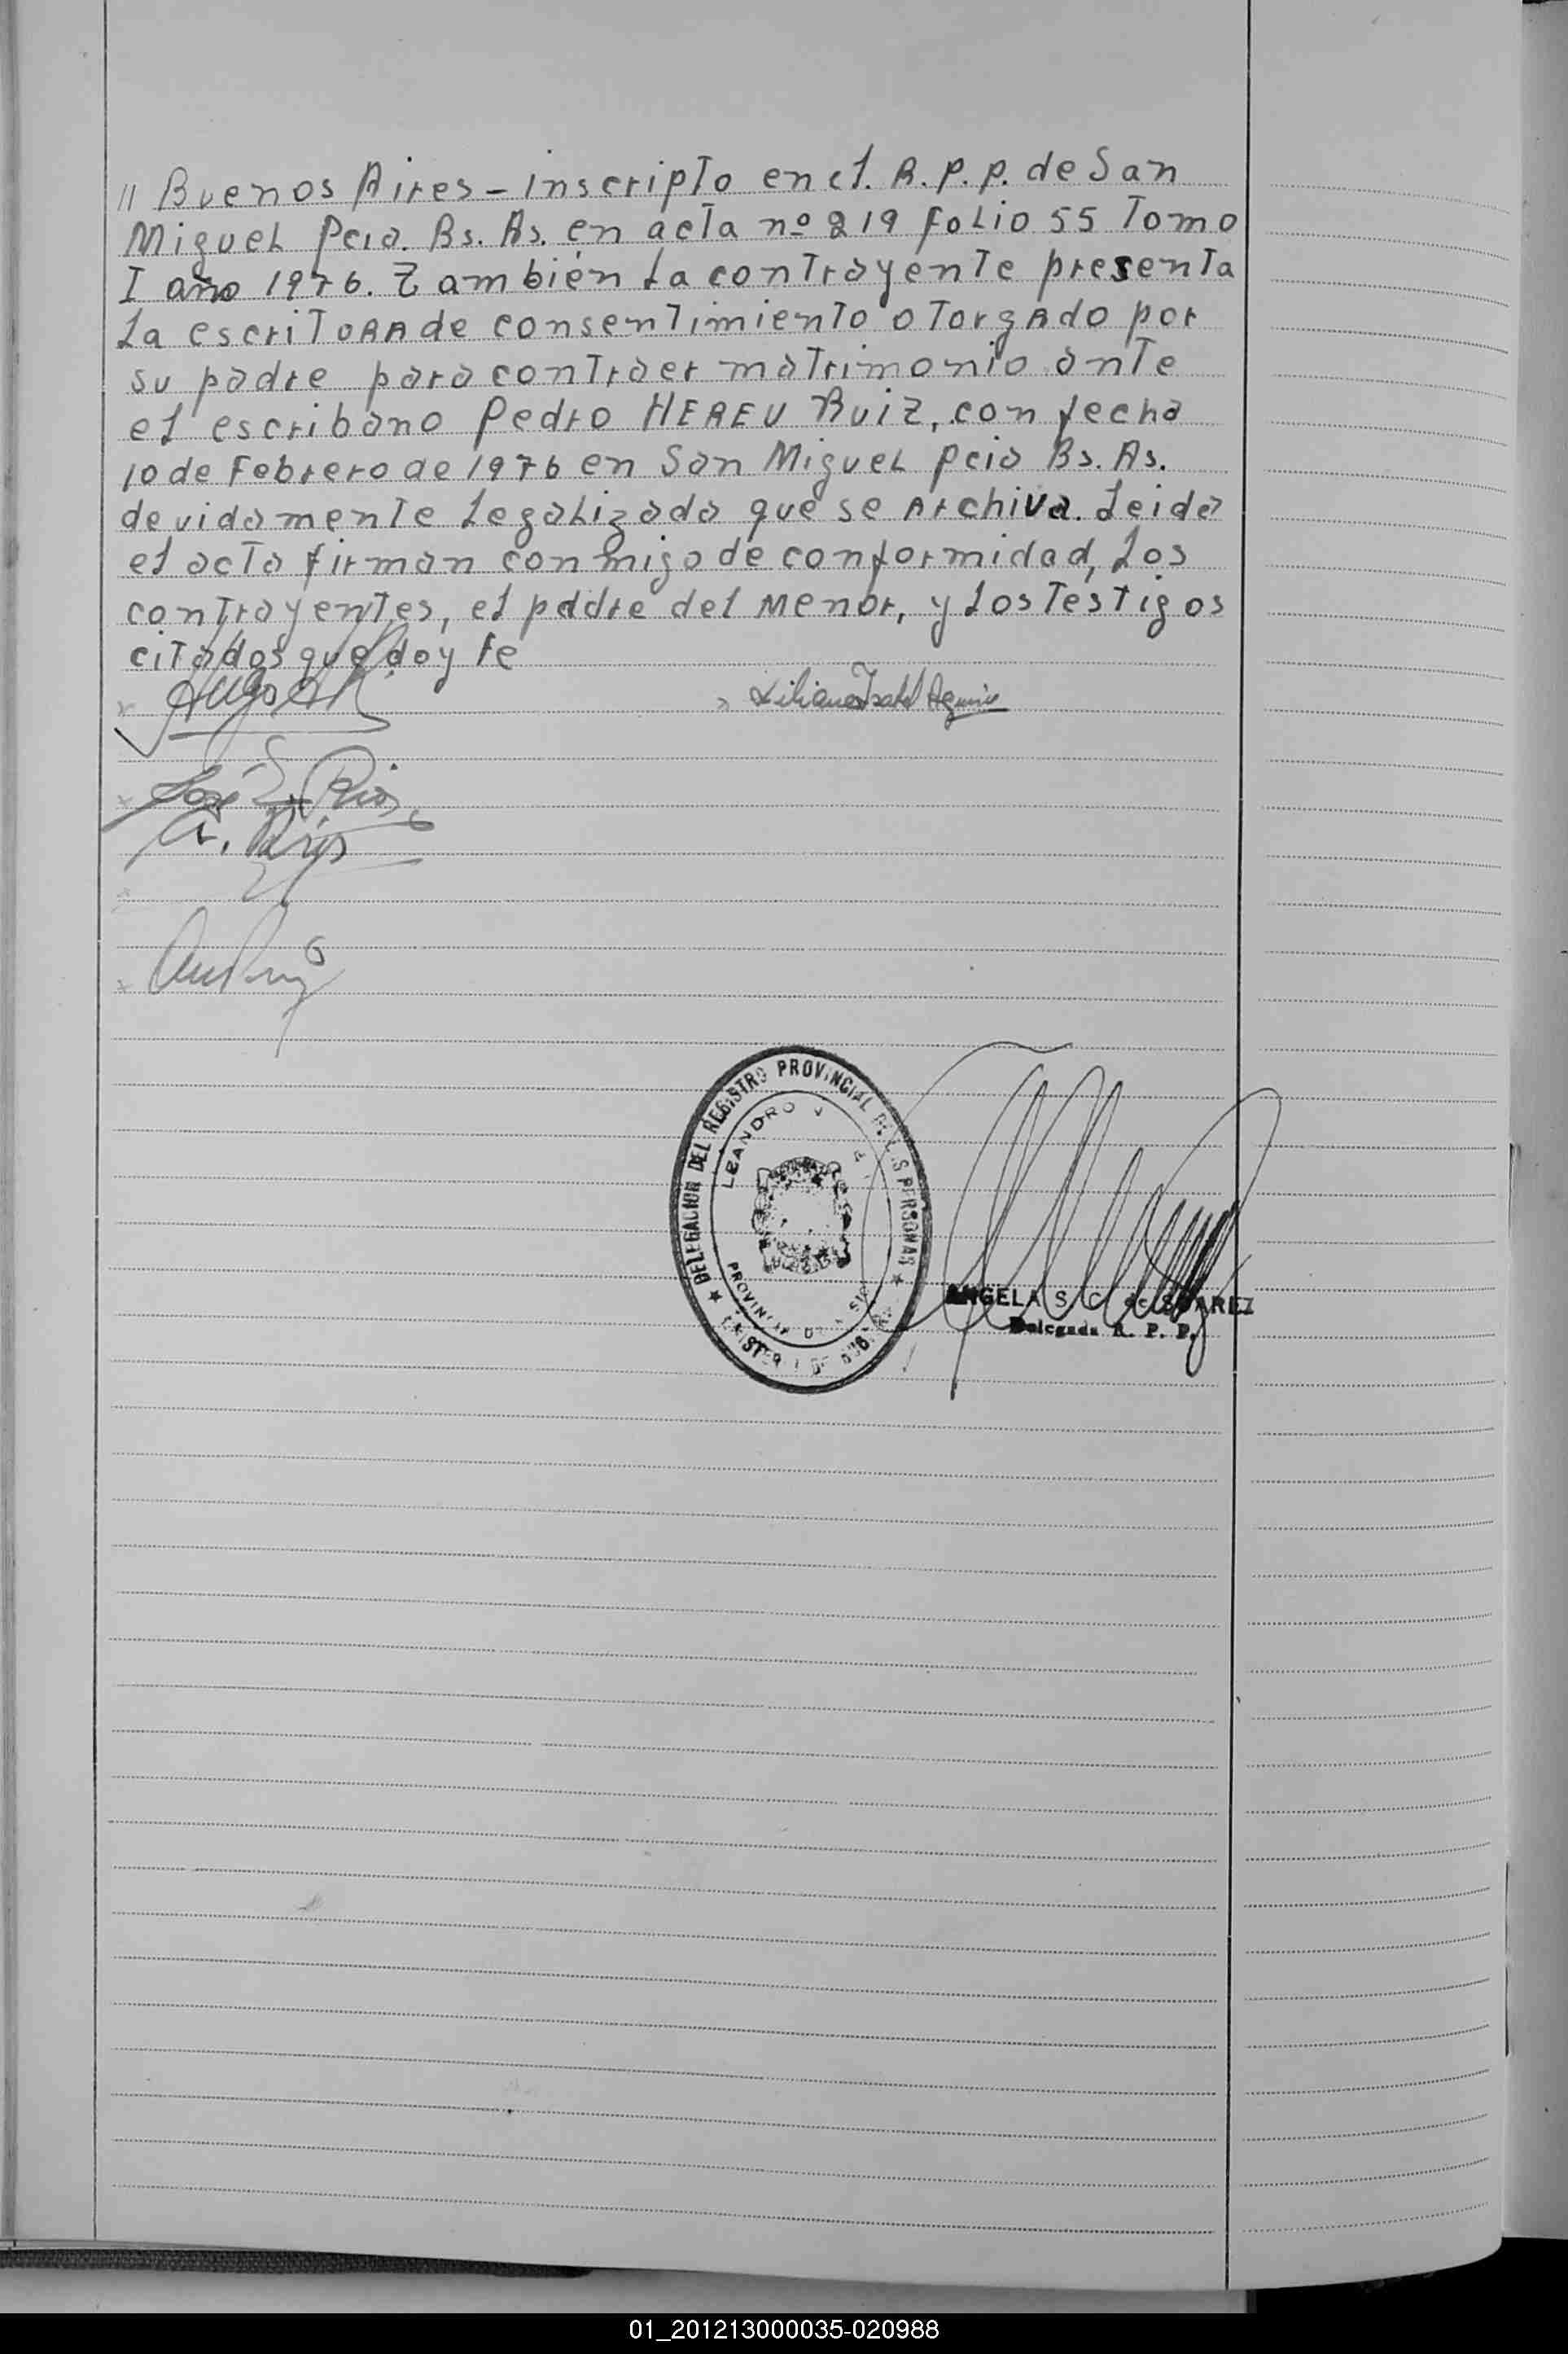 // Buenos Aires - inscripto en el. R.P.P. de San
Miguel Pcia. Bs. As. en acta nº 219 folio 55 Tomo
I año 1976. También la contrayente presenta
la escritoRA de consentimiento otorgado por
su padre para contraer matrimonio ante
el escribano Pedro HEREU Ruiz, con fecha
10 de Febrero de 1976 en San Miguel pcia Bs. As.
devidamente legalizada que se archiva. Leida
el acta firman conmigo de conformidad, los
contrayentes, el padre del menor, y los testigos
citados que doy fe
Liliana Isabel Aguirre
José Rios
A. Rios
DELEGACION DEL REGISTRO PROVINCIAL DE LAS PERSONAS
LEANDRO
PROVINCIA DE
MINISTERIO DE
ANGELA S. C. de SUAREZ
Delegada R. P. P.
01_201213000035-020988